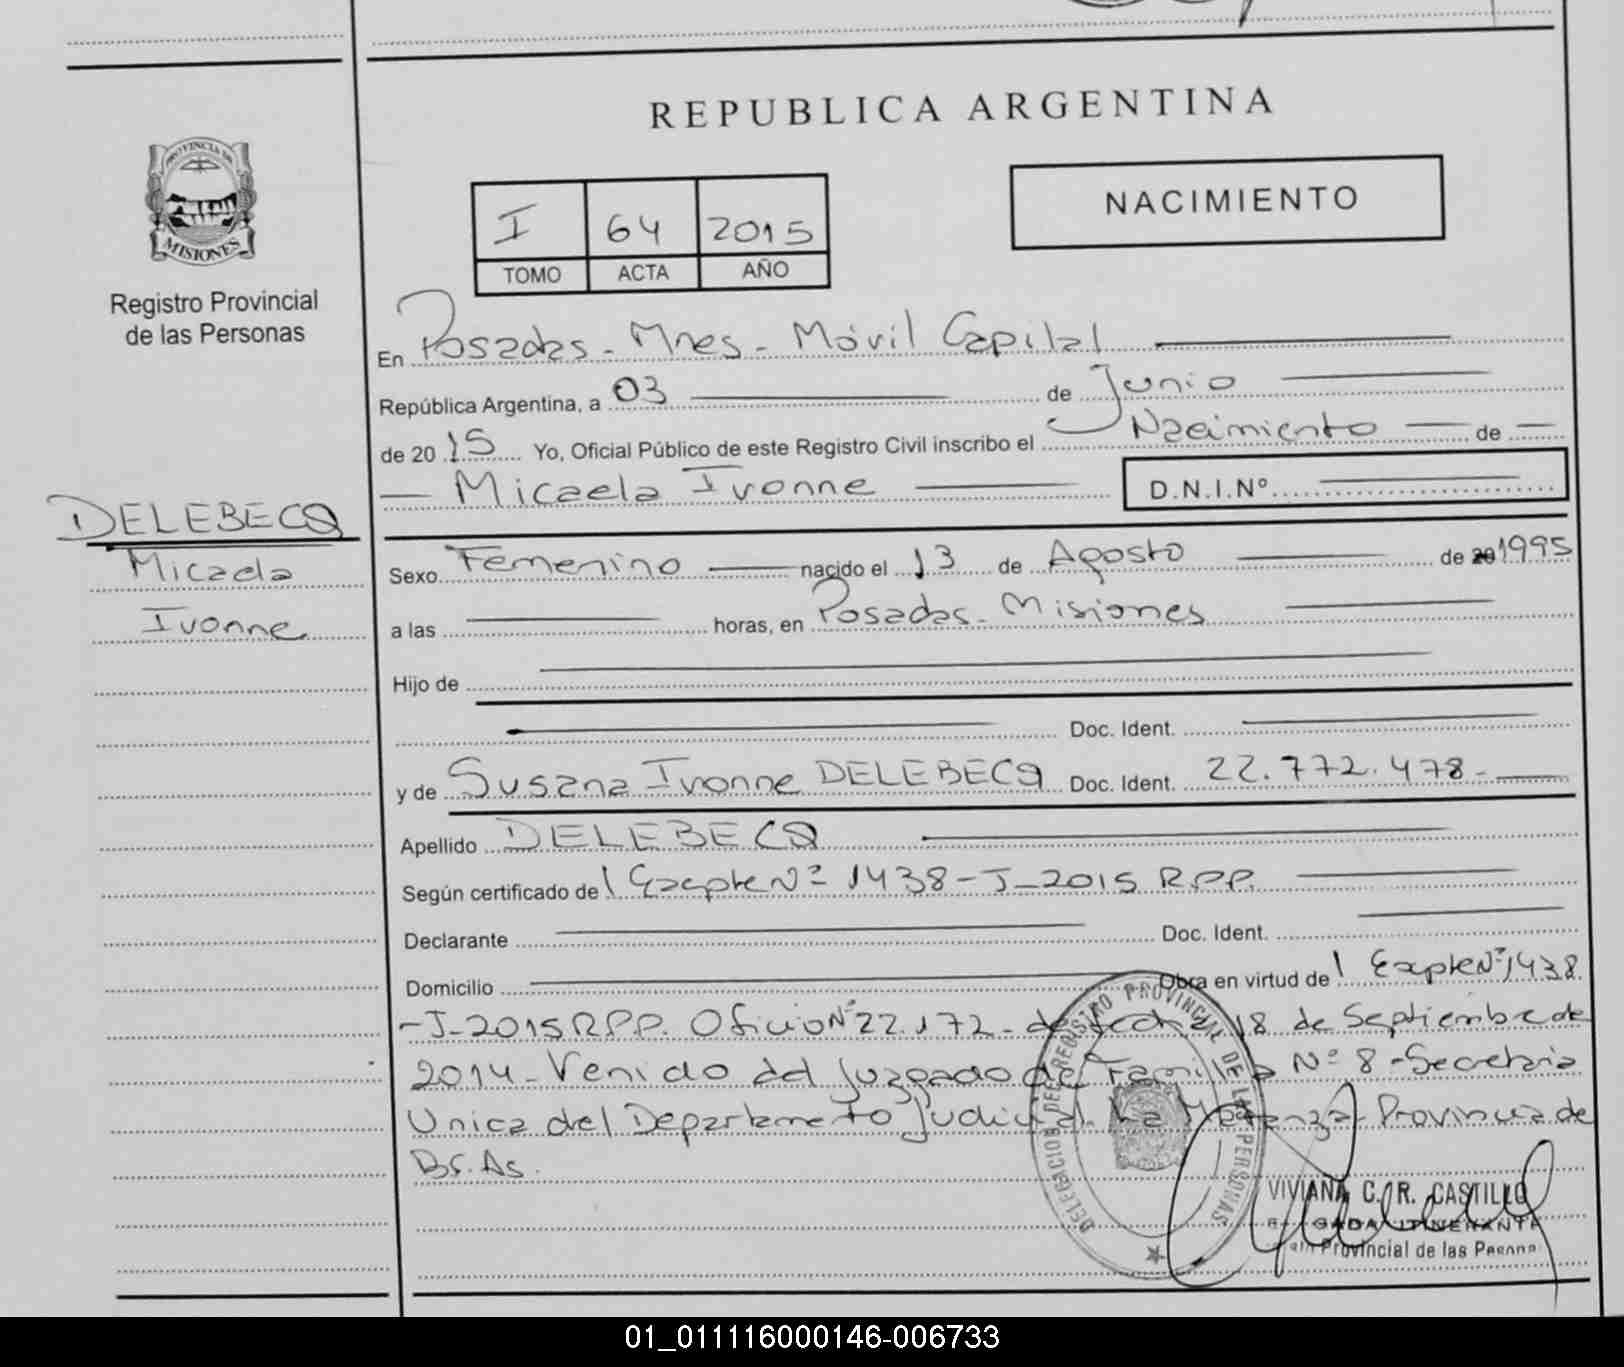 REPUBLICA ARGENTINA
PROVINCIA DE
MISIONES
Registro Provincial
de las Personas
I 64 2015
TOMO ACTA AÑO
NACIMIENTO
En Posadas - Mnes - Móvil Capital
República Argentina, a 03 de Junio
de 2015 Yo, Oficial Público de este Registro Civil inscribo el Nacimiento de
Micaela Ivonne D.N.I.Nº
DELEBECQ
Micaela
Ivonne
Sexo Femenino nacido el 13 de Agosto de 20 1995
a las horas, en Posadas - Misiones
Hijo de
Doc. Ident.
y de Susana Ivonne DELEBECQ Doc. Ident. 22.772.478-
Apellido DELEBECQ
Según certificado de Expte Nº 1438-J-2015 R.P.P.
Declarante Doc. Ident.
Domicilio Obra en virtud de Expte Nº 1438
-J-2015 R.P.P. Oficio Nº 22.172 - de fecha 18 de Septiembre de
2014 - Venido del Juzgado de Familia Nº 8 - Secretaria
Unica del Departamento Judicial La Matanza Provincia de
Bs. As.
DELEGACION DEL REGISTRO PROVINCIAL DE LAS PERSONAS
VIVIANA C. R. CASTILLO
ITINERANTE
Provincial de las
01_011116000146-006733